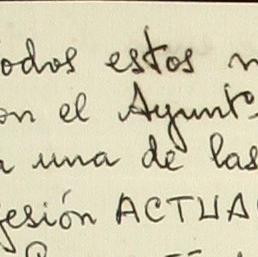 odos estos
on el Ayunto
una de las
esión ACTUA